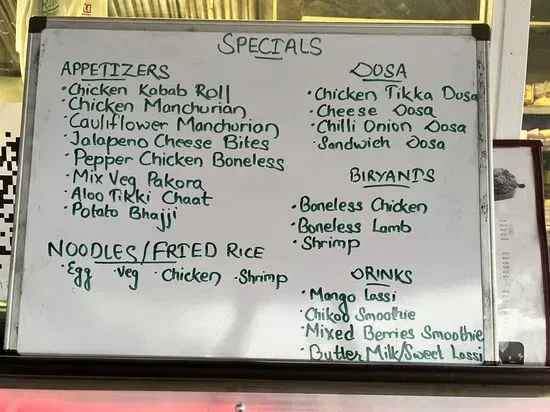 SPECIALS
APPETIZERS
• Chicken Kabab Roll
• Chicken Manchurian
• Cauliflower Manchurian
• Jalapeno Cheese Bites
• Pepper Chicken Boneless
• Mix Veg Pakora
• Aloo Tikki Chaat
• Potato Bhajji
NOODLES/FRIED RICE
• Egg • Veg • Chicken • Shrimp
DOSA
• Chicken Tikka Dosa
• Cheese Dosa
• Chilli Onion Dosa
• Sandwich Dosa
BIRYANIS
• Boneless Chicken
• Boneless Lamb
• Shrimp
DRINKS
• Mango Lassi
• Chikoo Smoothie
• Mixed Berries Smoothie
• Butter Milk/Sweet Lassi